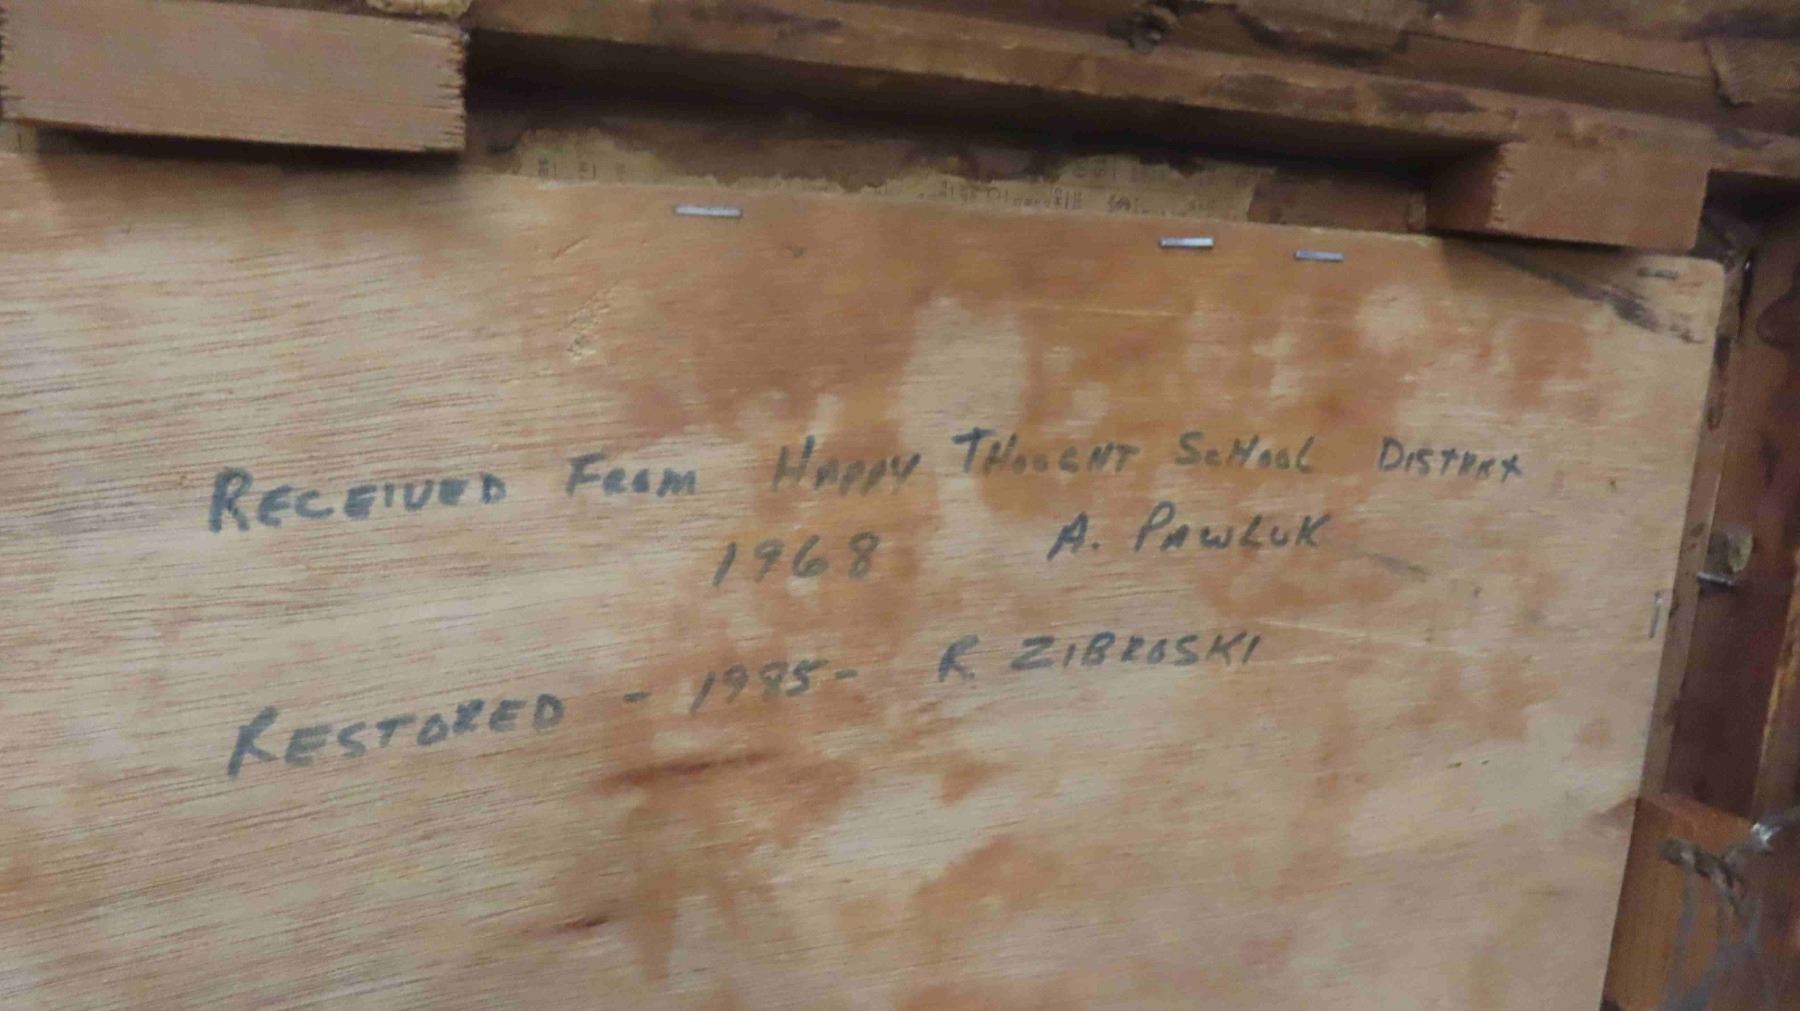 RECEIVED FROM HAPPY THOUGHT SCHOOL DISTRICT
1968 A. PAWLUK
RESTORED - 1985 - R ZIBROSKI